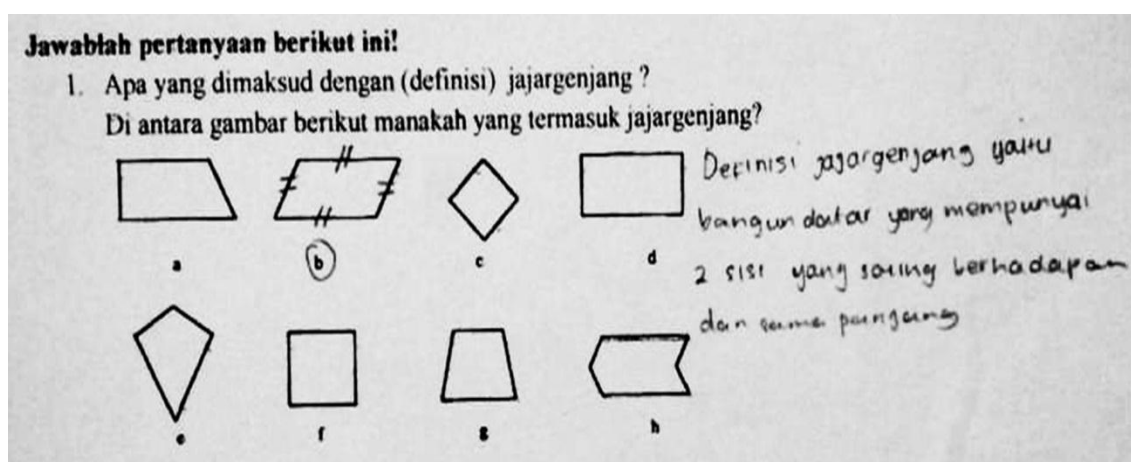 Jawablah pertanyaan berikut ini!
1. Apa yang dimaksud dengan (definisi) jajargenjang ?
Di antara gambar berikut manakah yang termasuk jajargenjang?
a
b
c
d
Definisi jajargenjang yaitu
bangun datar yang mempunyai
2 sisi yang saling berhadapan
dan sama panjang
e
f
g
h